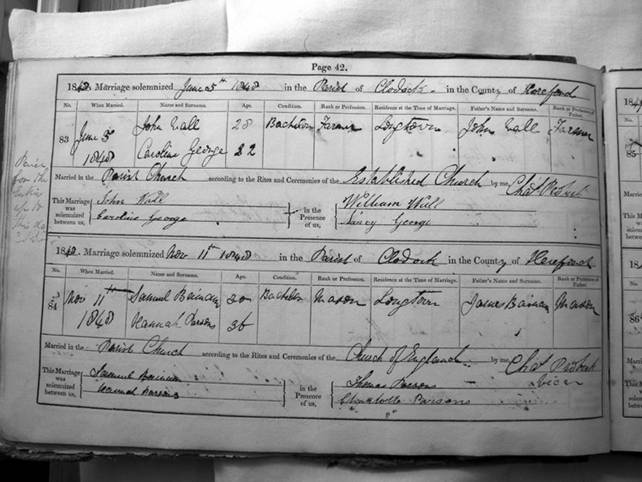 Page 42.
1848. Marriage solemnized June 5th 1848 in the Parish of Clodock in the County of Hereford
No. When Married. Name and Surname. Age. Condition. Rank or Profession. Residence at the Time of Marriage. Father's Name and Surname. Rank or Profession of Father.
83 June 5 John Wall 28 Bachelor Farmer Longtown John Wall Farmer
1848 Caroline George 22 " "
Married in the Parish Church according to the Rites and Ceremonies of the Established Church by me,
This Marriage was solemnized between us, John Wall in the Presence of us, William Wall
Caroline George Nancy George
1848. Marriage solemnized Nov 11th 1848 in the Parish of Clodock in the County of Hereford
No. When Married. Name and Surname. Age. Condition. Rank or Profession. Residence at the Time of Marriage. Father's Name and Surname. Rank or Profession of Father.
84 Nov 11th Samuel 30 Bachelor Mason Longtown Mason
1848 Hannah Parsons 36
Married in the Parish Church according to the Rites and Ceremonies of the Church of England by me,
This Marriage was solemnized between us, Samuel in the Presence of us, Thomas Parsons
Hannah Parsons Parsons
85
86